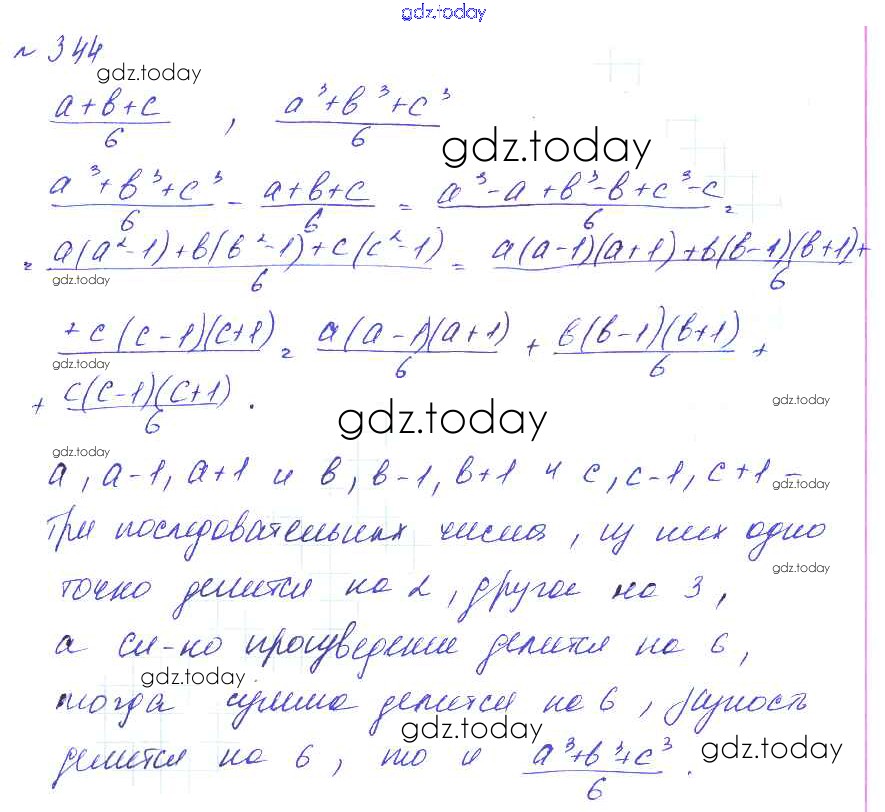 gdz.today
№ 344
gdz.today
(a+b+c)/6 , (a³+b³+c³)/6
gdz.today
(a³+b³+c³)/6 - (a+b+c)/6 = (a³-a+b³-b+c³-c)/6 =
= (a(a²-1)+b(b²-1)+c(c²-1))/6 = (a(a-1)(a+1)+b(b-1)(b+1)+)/6
gdz.today
(+c(c-1)(c+1))/ = a(a-1)(a+1)/6 + b(b-1)(b+1)/6 +
gdz.today
+ c(c-1)(c+1)/6 .
gdz.today
gdz.today
gdz.today
a, a-1, a+1 и b, b-1, b+1 и c, c-1, c+1 -
gdz.today
Три последовательных числа, из них одно
точно делится на 2, другое на 3,
gdz.today
а сл-но произведение делится на 6,
gdz.today
тогда сумма делится на 6, разность
gdz.today
делится на 6, то и (a³+b³+c³)/6 .
gdz.today